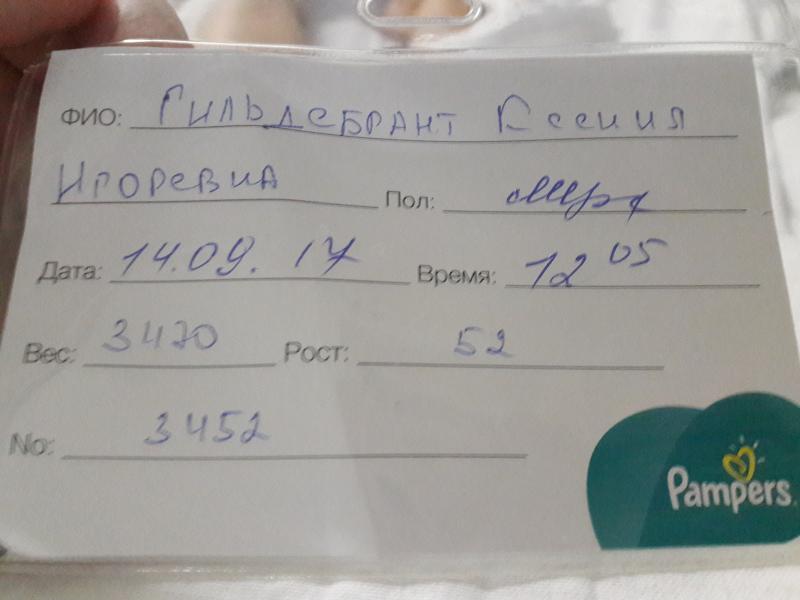 ФИО: Гильдебрант Ксения
Игоревна Пол:
Дата: 14.09.17 Время: 12 05
Вес: 3470 Рост: 52
No: 3452
Pampers